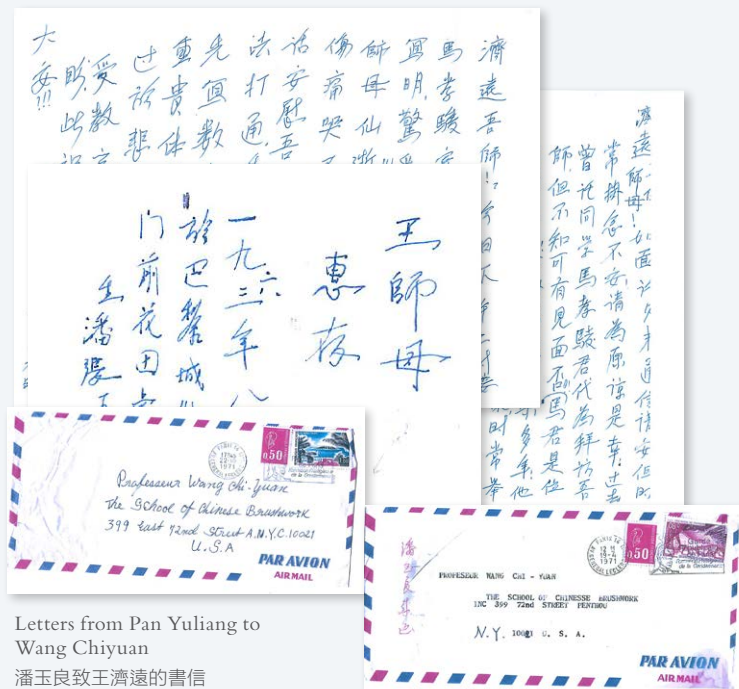 濟遠吾師!今日不幸
馬孝駿
寫明,驚
師母仙逝
傷痛哭不
話安慰吾
法打通,
先寫数
重貴体
过於悲
受教
盼此
大安!!!
濟遠師母!如面许久未通信请安但时
常掛念不安,请為原谅是幸.过去
曾託同学馬孝駿君代為拜訪吾
師,但不知可有見面否?馬君是位
多年.他
时常举
王師母
惠存
一九六三年八
於巴黎城
门前花田
生潘張玉
0.50
1971
Professeur Wang Chi-Yuan
The School of Chinese Brushwork
399 East 72nd Street A.N.Y.C. 10021
U.S.A
PAR AVION
AIR MAIL
0.50
1971
PROFESEUR WANG CHI - YUAN
THE SCHOOL OF CHINESSE BRUSHWORK
INC 399 72ND STREET PENTHOU
N.Y. 10021 U. S. A.
PAR AVION
AIR MAIL
Letters from Pan Yuliang to
Wang Chiyuan
潘玉良致王濟遠的書信